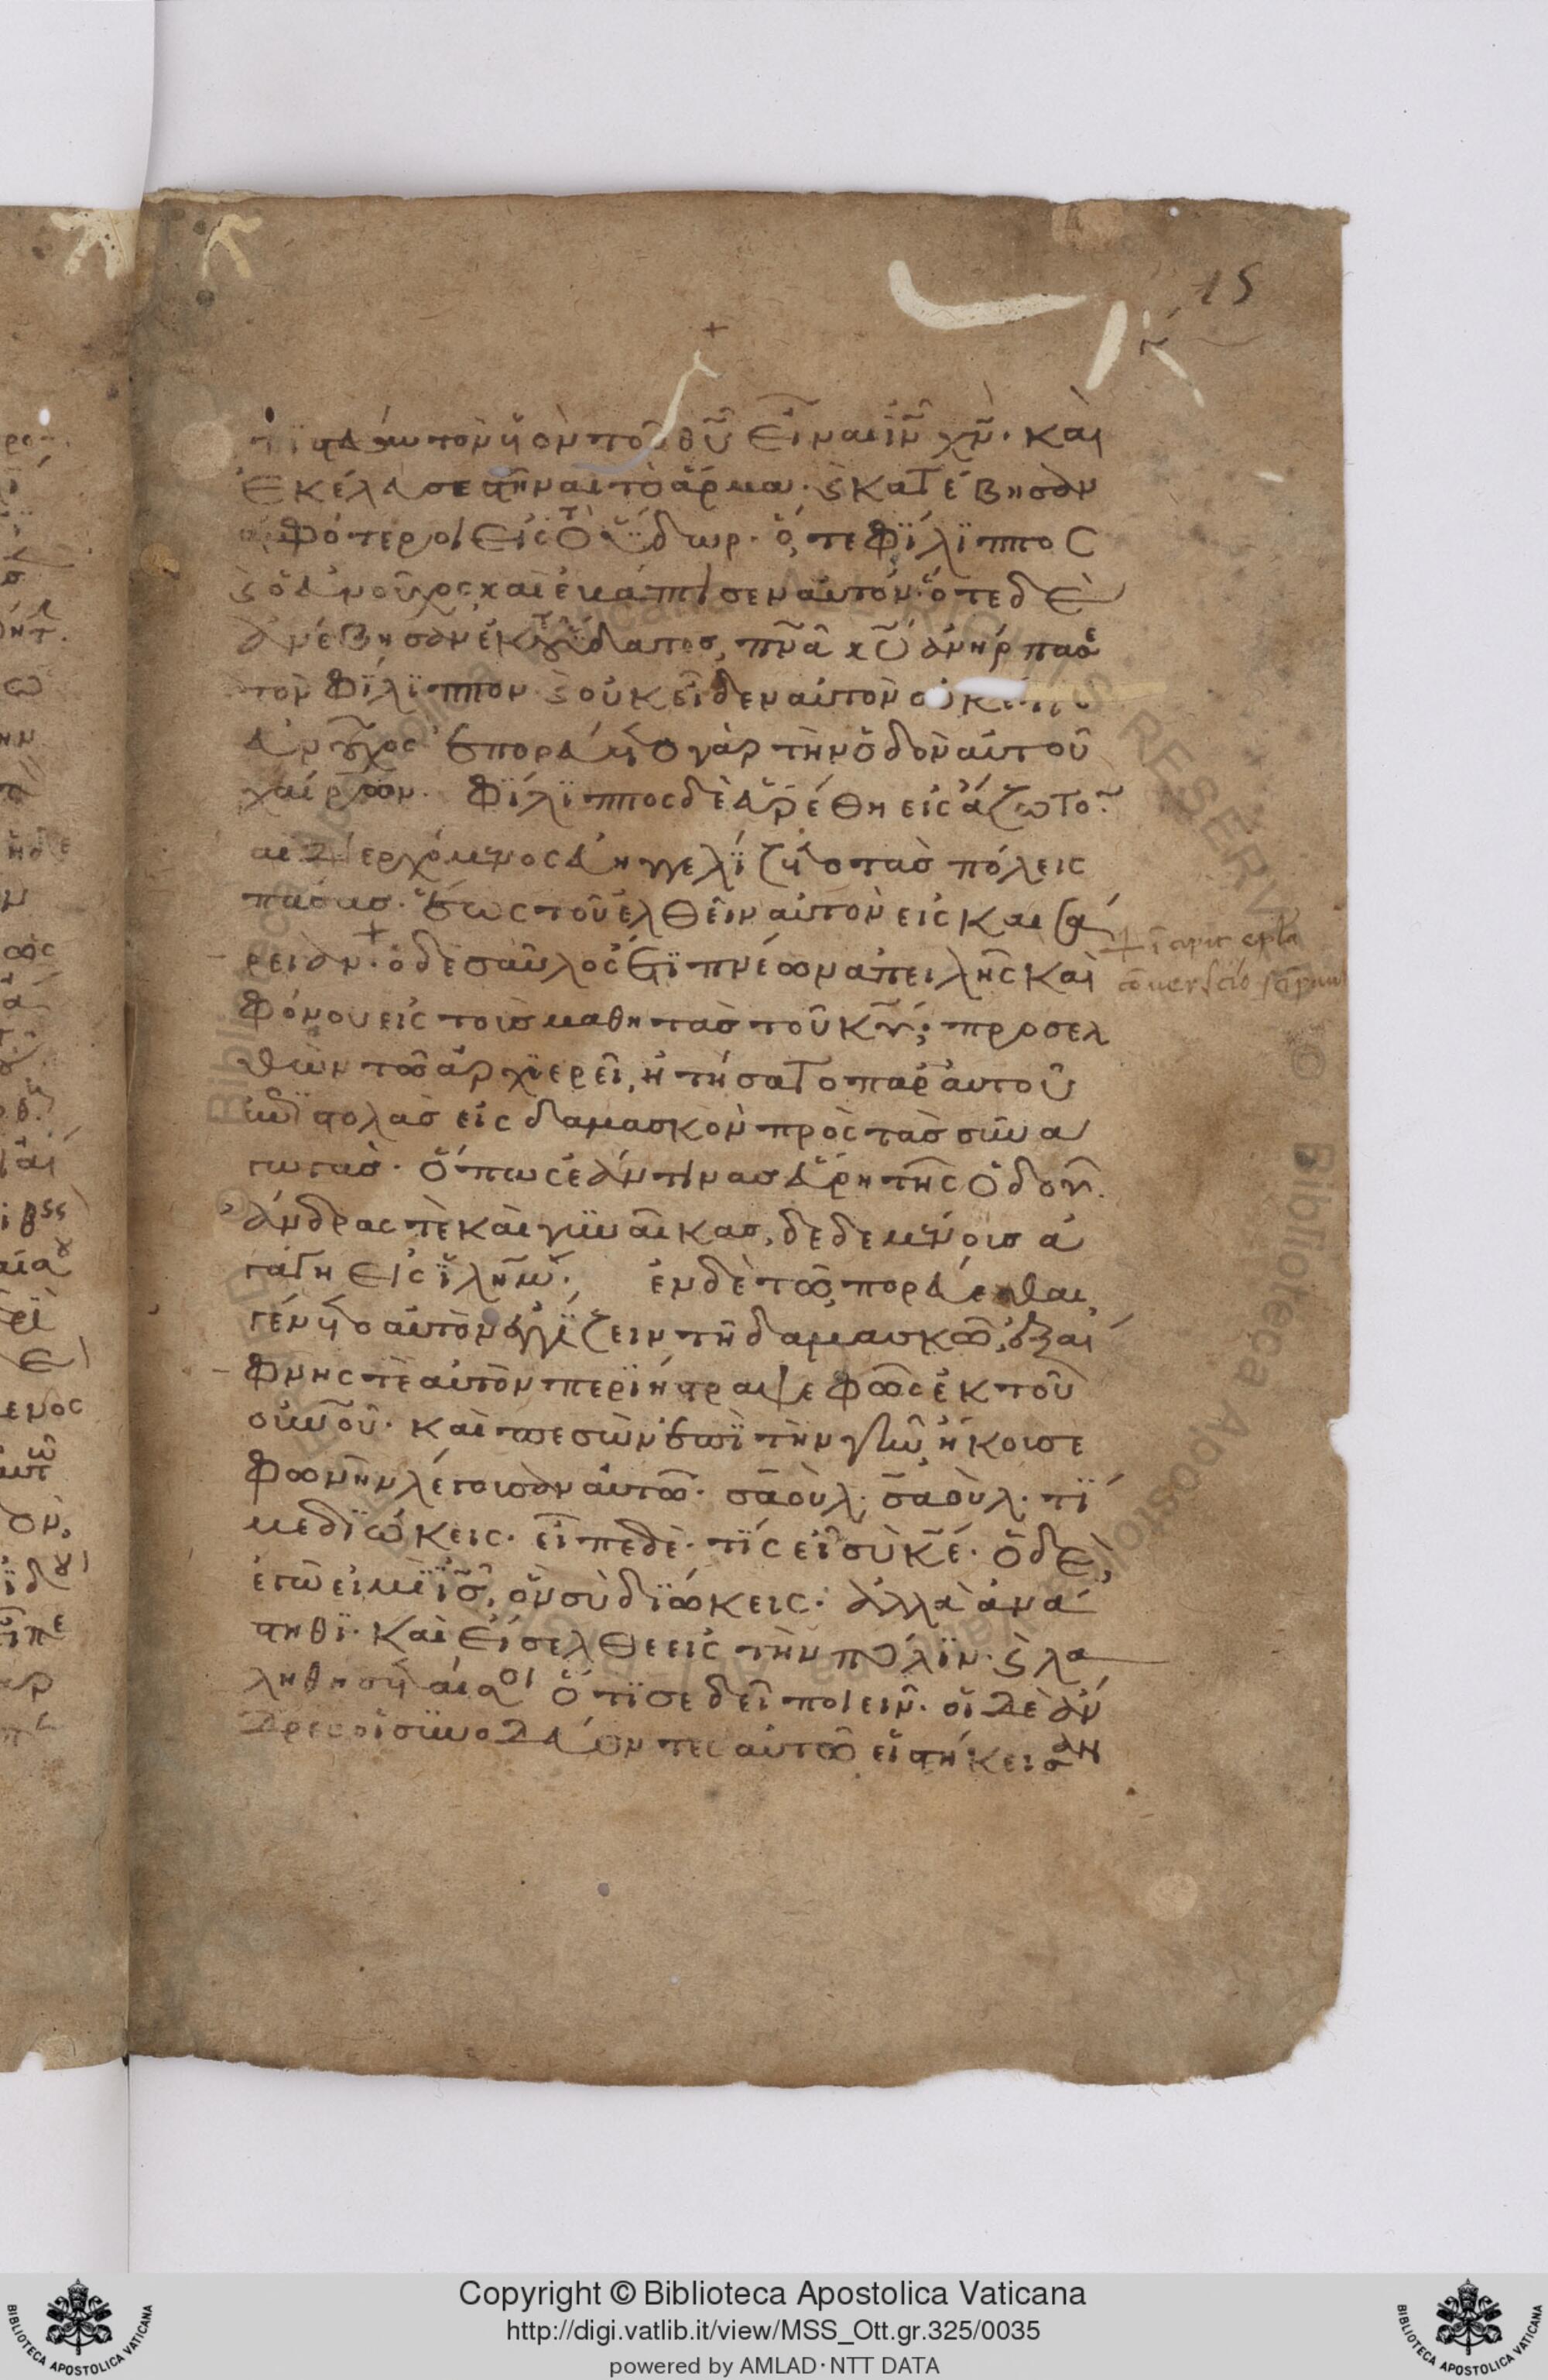 15
κ
πϊστεύω τὸν ὑὸν τοῦ θῦ εἶναι ἰν̃ χν̃. καὶ
ἐκέλευσε στῆναι τὸ ἅρμα. ϗ κατέβησαν
ἀμφότεροι εἰς τὸ ὕδωρ. ὅ, τε φϊλϊππος
ϗ ὁ εὐνοῦχος καὶ ἐβάπτισεν αὐτόν. ὅτε δὲ
ἀνέβησαν ἐκ τοῦ ὕδατος, πνᾶ κῦ ἀνήρπασε
τὸν φϊλϊππον. ϗ οὐκ εἶδεν αὐτὸν οὐκέτι ὁ
εὐνοῦχος ἐπορεύετο γὰρ τὴν ὁδὸν αὐτοῦ
χαίρων. φϊλϊππος δὲ εὑρέθη εἰς ἄζωτον
καὶ διερχόμενος εὐηγγελϊζετο τὰς πόλεις
πάσας. ἕως τοῦ ἐλθεῖν αὐτὸν εἰς καισά
ρειαν. ὁ δὲ σαῦλος ἔτϊ πνέων ἀπειλῆς καὶ
φόνου εἰς τοὺς μαθητὰς τοῦ κῦ; προσελ
θὼν τῶ ἀρχϊερεῖ, ἠτήσατο παρ' αὐτοῦ
ἐπϊστολὰς εἰς δαμασκὸν πρὸς τὰς συνα
γωγὰς. ὅπως ἐάν τινας εὕρη τῆς ὁδοῦ.
ἄνδρας τὲ καὶ γυναῖκας, δεδεμένους ἀ
γάγη εἰς ϊλῆμ. ἐν δὲ τῶ πορεύεσθαι,
ἐγένετο αὐτὸν ἐγγϊζειν τῆ δαμασκῶ, ἐξαί
φνης τὲ αὐτὸν περϊήστραψε φῶς ἐκ τοῦ
οὐνοῦ. καὶ πεσὼν ἐπϊ τὴν γῆν, ἤκουσε
φωνὴν λέγουσαν αὐτῶ. σαοὺλ, σαοὺλ. τϊ
με δϊώκεις. εἶπε δὲ. τϊς εἶ σὺ κέ. ὁ δὲ,
ἐγώ εἰμϊ ϊς̃, ὃν σὺ δϊώκεις. ἀλλὰ ἀνά
στηθϊ. καὶ εἴσελθε εἰς τὴν πόλϊν. ϗ λα
ληθήσεταί σοι ὅ τϊ σε δεῖ ποιεῖν. οἱ δὲ ἄν
δρες οἱ συνοδεύοντες αὐτῶ εἱστήκεισαν
+ incipit epla
conuersio s pauli
Copyright © Biblioteca Apostolica Vaticana
http://digi.vatlib.it/view/MSS_Ott.gr.325/0035
powered by AMLAD·NTT DATA
BIBLIOTECA APOSTOLICA VATICANA
BIBLIOTECA APOSTOLICA VATICANA